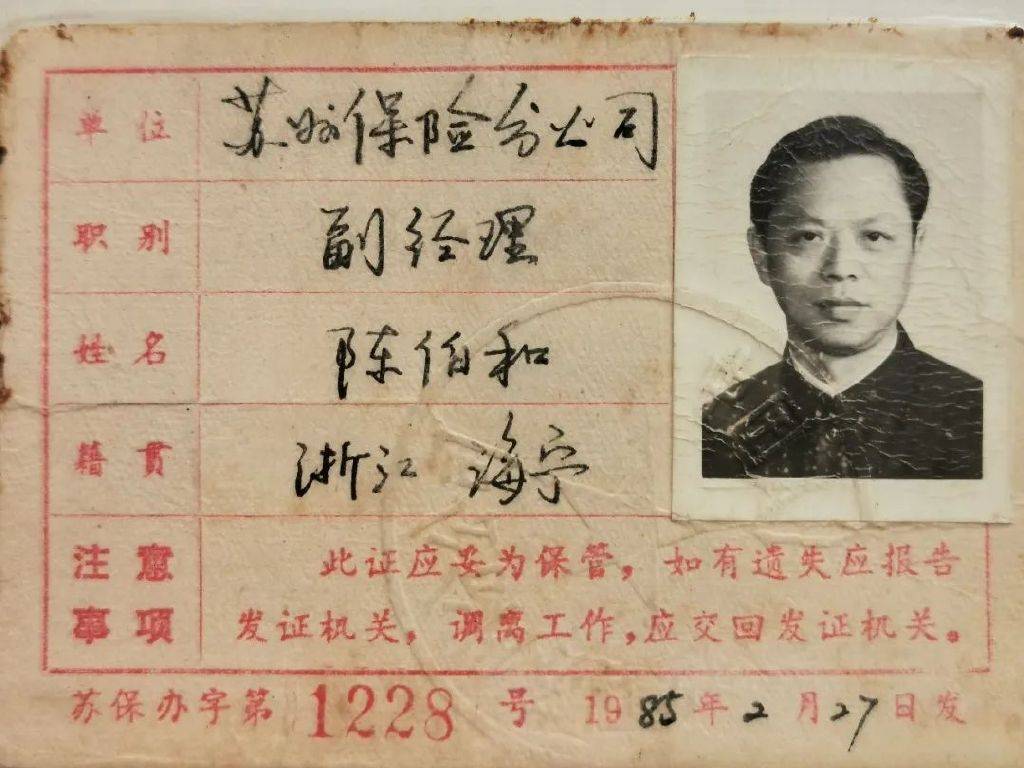 单位 苏州保险分公司
职别 副经理
姓名 陈伯和
籍贯 浙江 海宁
注意 此证应妥为保管，如有遗失应报告
事项 发证机关，调离工作，应交回发证机关。
苏保办字第 1228 号 1985年2月27日发